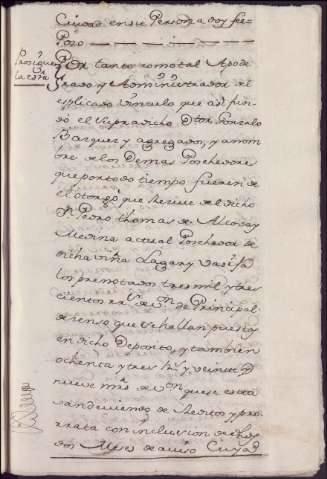 Ciudad en su Persona doy fee=
Prosiguen
la carta
Por tanto como tal Apode
rado y Administrador del
explicado vinculo que asi fun
dó el supradicho Dtor. Gonzalo
Bazquez y agregados, y a nom
bre de los Demas Porchedores
que por todo tiempo fueren de
el otorgó que recive del dicho
Dn. Pedro Thomas de Alcoba y
Medina actual Porchedor de
dicha viña Lagar y vasija
los prenotados tres mil y tres
cientos rrs. de vn. de Principal
de censo que se hallan puestos
en dicho Deposito, y tambien
ochenta y tres rs. y veinte y
nueve mrs. de von que se esta
van deviendo de reditos y pro
rrata con inclusion de
dos Meses de aviso Cuya